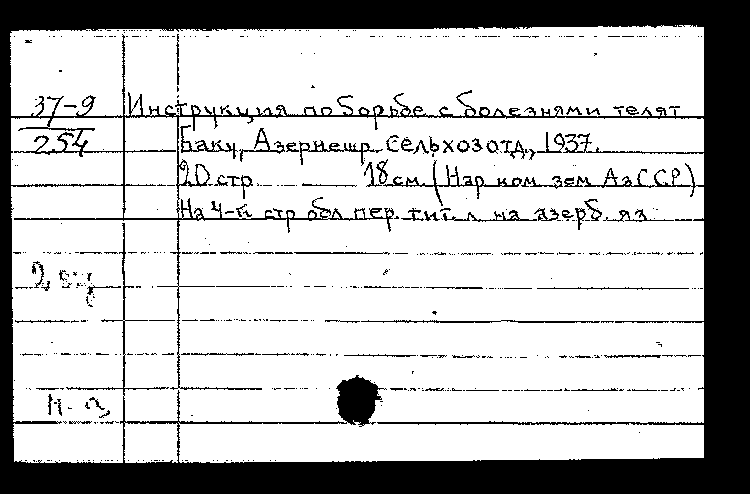 37-9 Инструкция по борьбе с болезнями телят
254 Баку, Азернешр. Сельхозотд., 1937.
20 стр. 18 см. (Нар ком зем АзССР)
На 4-й стр обл. пер. тит. л. на азерб. яз
2,